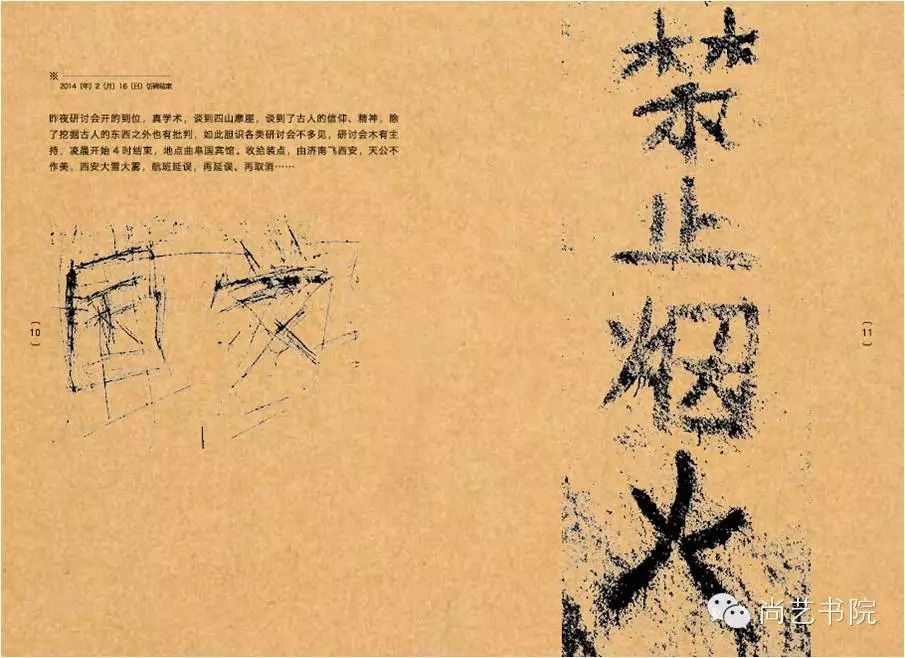 ※
2014〔年〕2〔月〕16〔日〕访碑结束
昨夜研讨会开的到位，真学术，谈到四山摩崖，谈到了古人的信仰、精神，除
了挖掘古人的东西之外也有批判，如此胆识各类研讨会不多见，研讨会木有主
持，凌晨开始 4 时结束，地点曲阜国宾馆。收拾装点，由济南飞西安，天公不
作美，西安大雪大雾，航班延误，再延误、再取消……
10
禁
止
烟
火
11
尚艺书院